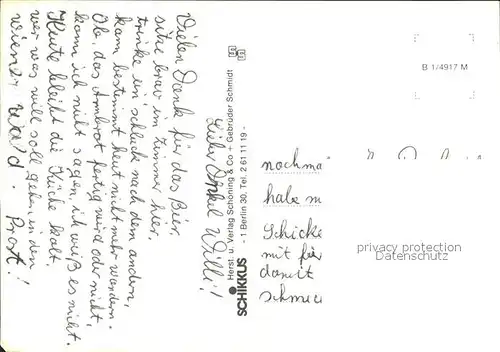 Lieber Onkel Willi!
Vielen Dank für das Bier,
sitze brav im Zimmer hier,
trinke ein' schluck nach dem andern,
kann bestimmt heut nicht mehr wandern.
Ob, das Ambrot fertig wird oder nicht,
kann ich nicht sagen, ich weiß es nicht.
Heute bleibt die Küche kalt,
wer was will soll gehen in den
wiener wald. Prost!
SCHIKKUS
Herst. u. Verlag Schöning & Co + Gebrüder Schmidt
- 1 Berlin 30. Tel. 2 61 11 19 -
B 1/4917 M
nochma
habe m
Schicke
mit für
damit
schmec
privacy protection
Datenschutz